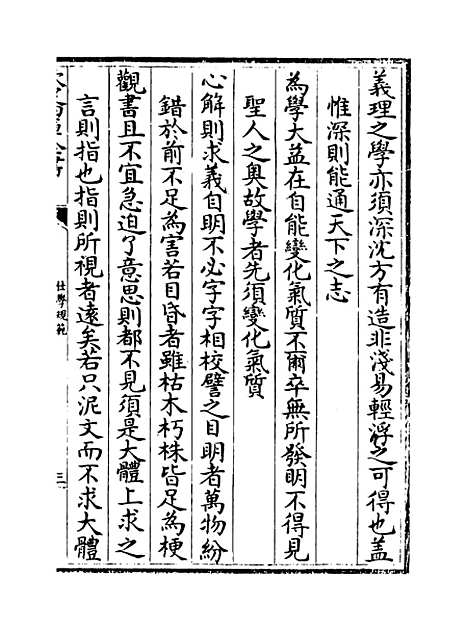 義理之學亦須深沈方有造非淺易輕浮之可得也蓋
惟深則能通天下之志
為學大益在自能變化氣質不爾卒無所發明不得見
聖人之奧故學者先須變化氣質
心解則求義自明不必字字相校譬之目明者萬物紛
錯於前不足為害若目昏者雖枯木朽株皆足為梗
觀書且不宜急迫了意思則都不見須是大體上求之
言則指也指則所視者遠矣若只泥文而不求大體
仕學規範